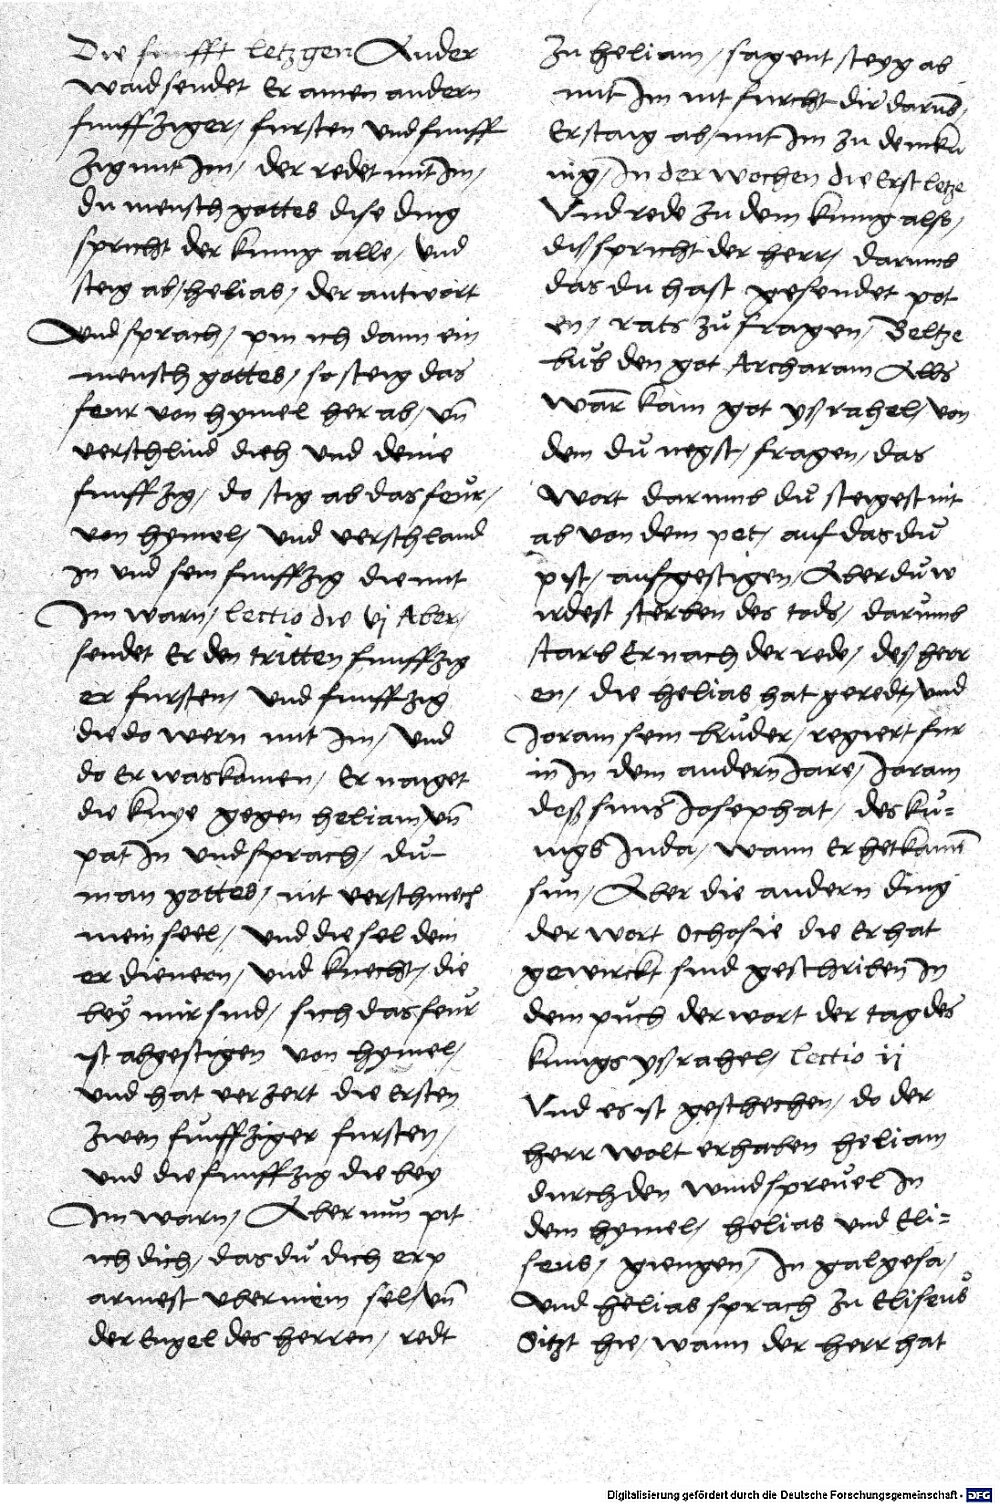 Die funfft letzgen Ander
waid sendet Er ainen andern
funffziger / fursten und funff
zig mit Im / der redet mit Im /
du mensch gottes dise ding
spricht der kunig alle / und
steig ab / helias / der antwort
Und sprach / pin ich dann ein
mensch gottes / so steig das
feur von hymel her ab / un̄
verschlind dich und deine
funffzig / do stig ab das feür /
von hymel / und verschland
in und sein funffzig die mit
Im warn / lectio die vj Aber /
sendet Er den tritten funffzig
er fursten / und funffzig
die do wern mit Im / und
do Er was komen / Er naiget
die knye gegen heliam / un̄
pat In und sprach / dü
man gottes / nit verschmech
mein seel / und die sel dein
er dienern / und knecht / die
bey mir sind / sich das feür
ist abgestigen von hymel /
und hat verzert die Ersten
zwen fünffziger fursten /
und die funffzig die bey
Im warn / Aber nün pit
ich dich / das dü dich erp
armest uber mein sel / un̄
der Engel des herren / redt
zu heliam / sagent steyg ab
mit Im nit furcht dir darūb /
Er staig ab / mit Im zu dem ku
nig / In der wochen die Erst letze
Und rede zu dem kunig also /
diss spricht der herr / darumb
das du hast gesendet pot
en / rats zü fragen / Beltze
büb den got Archaram Alls
wār kain got ysrahel / von
dem dü megst / fragen / das
wort darumb dü steigest nit
ab von dem pet / auf das dü
pist / aufgestigen / Aber dü w
irdest sterben des tods / darümb
starb Er nach der rede / dess herr
en / die helias hat geredt / und
Joram sein brüder / regiert fur
in In dem andern Jare / Joram
dess suns Josephat / des kü=
nigs Juda / wann Er het kainn̄
sün / Aber die andern ding
der wort Ochosie die Er hat
gewirckt sind geschriben In
dem püch der wort der tag des
kunigs ysrahel / lectio ij
Und es ist geschechen / do der
herr wolt erhaben heliam
durch den windspreüel In
dem hymel / helias und Eli=
seus / giengen / In galgesa /
und helias sprach zu Eliseüs
Sitzt hie / wann der herr hat
Digitalisierung gefördert durch die Deutsche Forschungsgemeinschaft - DFG